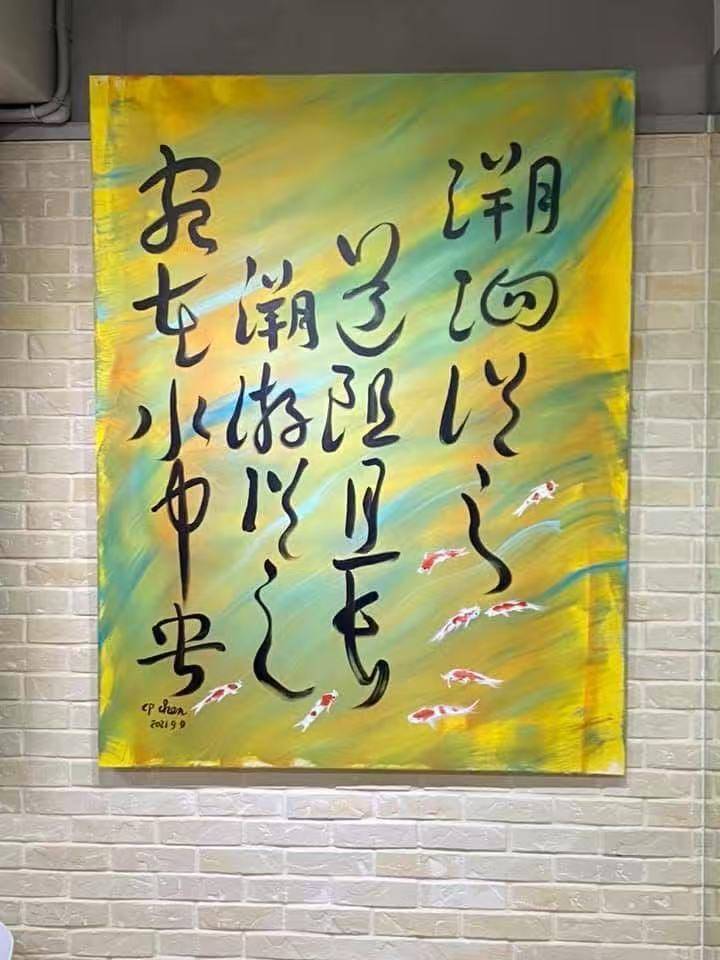 溯洄從之
道阻且長
溯游從之
宛在水中央
CP chen
2021 9.9